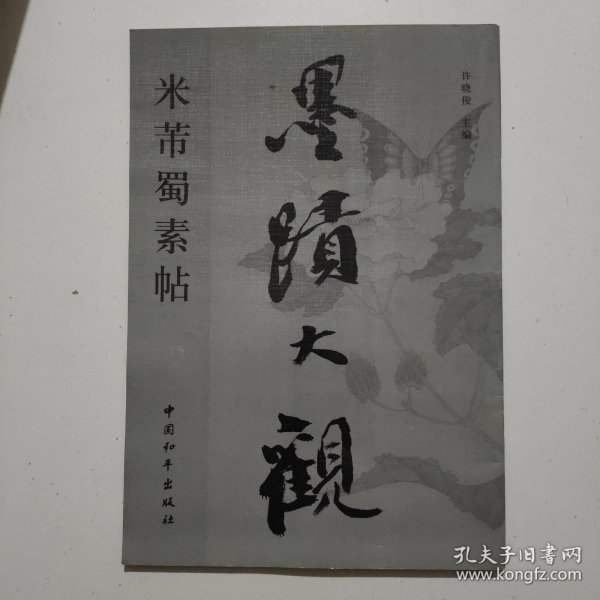 许晓俊 主编
墨蹟大觀
米芾蜀素帖
中国和平出版社
孔夫子旧书网
www.kongfz.com